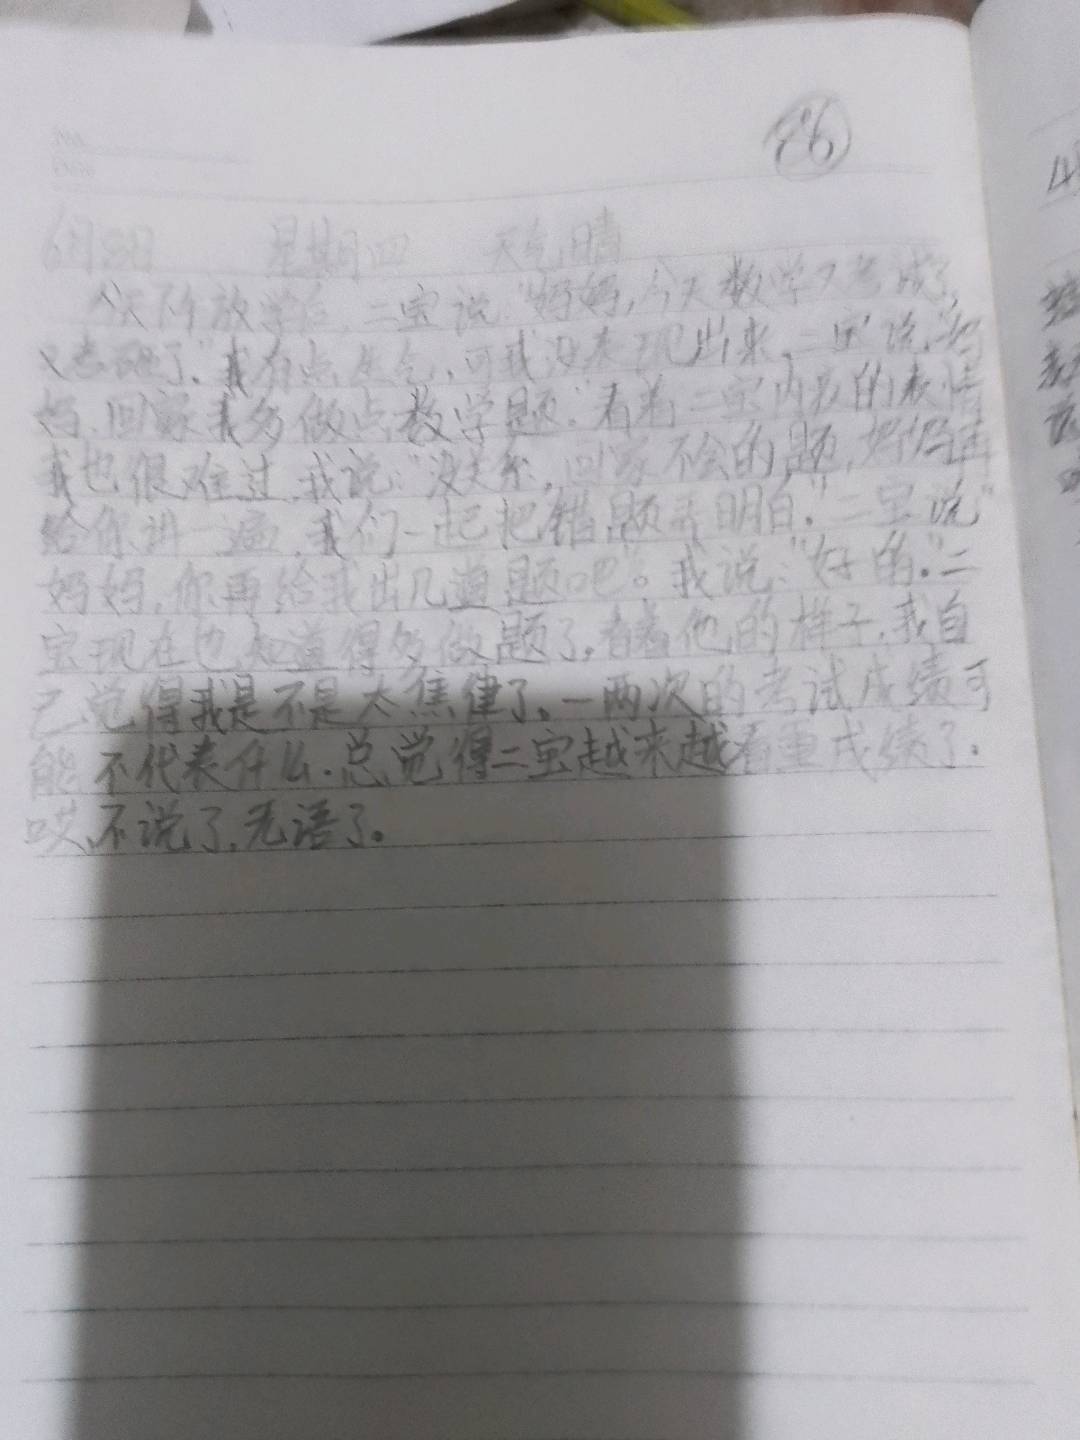 86
6月8日 星期四 天气晴
今天下午放学后,二宝说:"妈妈,今天数学又考试了,
又考砸了."我有点生气,可我没表现出来,二宝说:"妈
妈,回家我多做点数学题."看着二宝内疚的表情
我也很难过,我说:"没关系,回家不会的题,妈妈再
给你讲一遍,我们一起把错题弄明白."二宝说"
妈妈,你再给我出几道题吧"。我说:"好的."二
宝现在也知道得多做题了,看着他的样子,我自
己觉得我是不是太焦律了。一两次的考试成绩可
能不代表什么.总觉得二宝越来越看重成绩了.
哎,不说了,无语了。